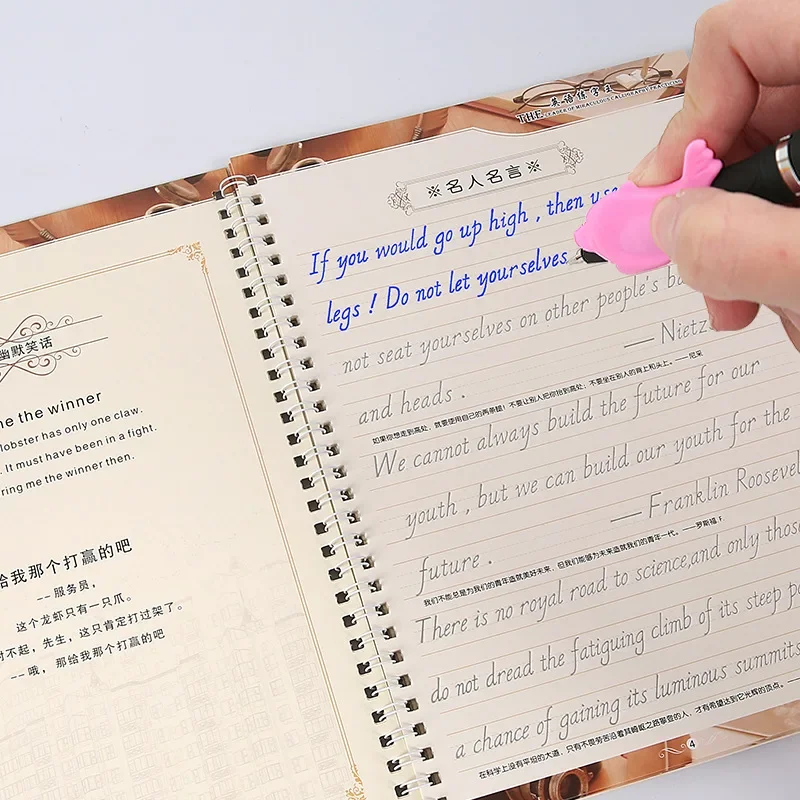 幽默笑话
me the winner
lobster has only one claw.
. It must have been in a fight.
ring me the winner then.
给我那个打赢的吧
--服务员,
这个龙虾只有一只爪。
对不起,先生,这只肯定打过架了。
--哦,那给我那个打赢的吧
英语练字王
THE LEADER OF MIRACULOUS CALLIGRAPHY PRACTICING
※名人名言※
If you would go up high , then use
legs ! Do not let yourselves
not seat yourselves on other people's
— Nietz
and heads .
如果你想走到高处,就要使用自己的两条腿!不要让别人把你抬到高处;不要坐在别人的背上和头上。—尼采
We cannot always build the future for our
youth , but we can build our youth for the
— Franklin Roosevel
future .
我们不能总是为我们的青年造就美好未来,但我们能够为未来造就我们的青年一代。—罗斯福 F.
There is no royal road to science,and only those
do not dread the fatiguing climb of its steep
a chance of gaining its luminous summits
在科学上没有平坦的大道,只有不畏劳苦沿着其崎岖之路攀登的人,才有希望达到它光辉的顶点。—
4